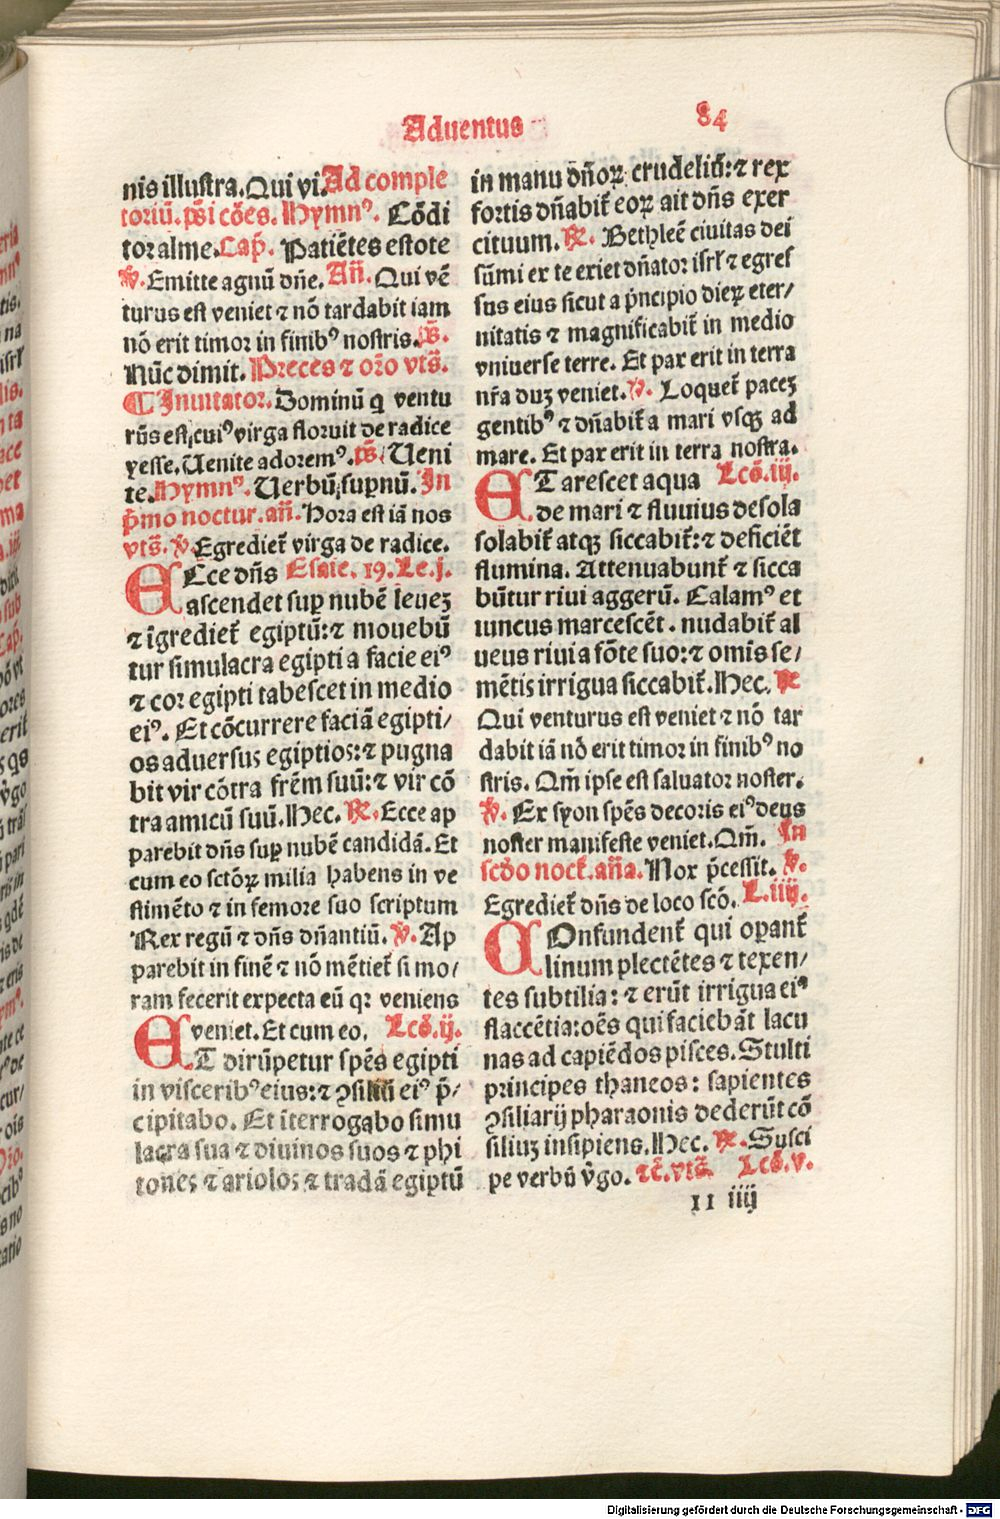 Aduentus 84
nis illustra. Qui vi. Ad comple
toriū. ps̄i cōes. Hymnꝰ. Cōdi
tor alme. Cap̄. Patiētes estote
℣. Emitte agnū dn̄e. An̄. Qui vē
turus est veniet ⁊ nō tardabit iam
nō erit timor in finibꝰ nostris. ps̄.
Nūc dimit. Preces ⁊ oro vts̄.
¶ Inuitator. Dominū q ventu
rūs est, cuiꝰ virga floruit de radice
yesse. Uenite adoremꝰ. ps̄. Ueni
te. Hymnꝰ. Uerbū supnū. In
p̄mo noctur. an̄. Hora est iā nos
vts̄. ℣. Egrediet̄ virga de radice.
ECce dn̄s Esaie. 19. Le. j.
ascendet sup nubē leueʒ
⁊ īgrediet̄ egiptū: ⁊ mouebū
tur simulacra egipti a facie eiꝰ
⁊ cor egipti tabescet in medio
eiꝰ. Et cōcurrere faciā egipti/
os aduersus egiptios: ⁊ pugna
bit vir cōtra frēm suū: ⁊ vir cō
tra amicū suū. Hec. ℟. Ecce ap
parebit dn̄s sup nubē candidā. Et
cum eo sctōꝝ milia habens in ve
stimēto ⁊ in femore suo scriptum
Rex regū ⁊ dn̄s dn̄antiū. ℣. Ap
parebit in finē ⁊ nō mētiet̄ si mo/
ram fecerit expecta eū qꝛ veniens
veniet. Et cum eo. Lcō. ij.
ET dirūpetur spēs egipti
in visceribꝰ eius: ⁊ ꝯsiliū eiꝰ p̄/
cipitabo. Et īterrogabo simu
lacra sua ⁊ diuinos suos ⁊ phi
tones ⁊ ariolos ⁊ tradā egiptū
in manu dn̄oꝝ crudeliū: ⁊ rex
fortis dn̄abit̄ eoꝝ ait dn̄s exer
cituum. ℟. Bethleē ciuitas dei
sūmi ex te exiet dn̄ator isrl̄ ⁊ egres
sus eius sicut a p̄ncipio dieꝝ eter/
nitatis ⁊ magnificabit̄ in medio
vniuerse terre. Et pax erit in terra
nr̄a duʒ veniet. ℣. Loquet̄ paceʒ
gentibꝰ ⁊ dn̄abit̄ a mari vsqʒ ad
mare. Et pax erit in terra nostra.
ET arescet aqua Lcō. iij.
de mari ⁊ fluuius desola
solabit̄ atqʒ siccabit̄: ⁊ deficiēt
flumina. Attenuabunt̄ ⁊ sicca
būtur riui aggerū. Calamꝰ et
iuncus marcescēt. nudabit̄ al
ueus riui a fōte suo: ⁊ omīs se/
mētis irrigua siccabit̄. Hec. ℟
Qui venturus est veniet ⁊ nō tar
dabit iā nō erit timor in finibꝰ no
stris. Qm̄ ipse est saluator noster.
℣. Ex syon spēs decoris eiꝰ deus
noster manifeste veniet. Qm̄. In
scdo noct̄. an̄a. Nox p̄cessit. ℣.
Egrediet̄ dn̄s de loco scō. L. iiij.
COnfundent̄ qui opant̄
linum plectētes ⁊ texen/
tes subtilia: ⁊ erūt irrigua eiꝰ
flaccētia: oēs qui faciebāt lacu
nas ad capiēdos pisces. Stulti
principes thaneos: sapientes
ꝯsiliarij pharaonis dederūt cō
siliuʒ insipiens. Hec. ℟. Susci
pe verbū v̄go. ⁊c̄. vts̄. Lcō. v.
11 iiij
Digitalisierung gefördert durch die Deutsche Forschungsgemeinschaft - DFG